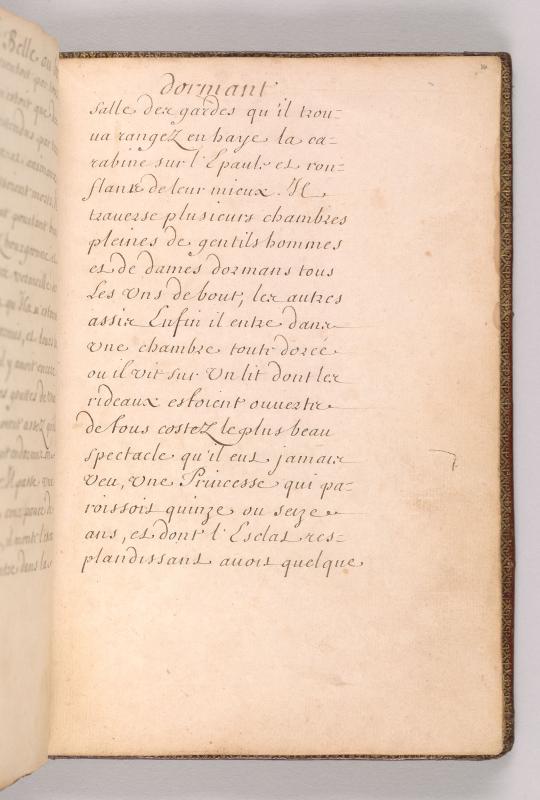 Belle ou b
dormant
salle des gardes qu'il trou=
ua rangez en haye la ca=
rabine sur l'Epaule et ron=
flant de leur mieux. Il
trauerse plusieurs chambres
pleines de gentilshommes
et de dames dormans tous
Les Vns debout, les autres
assis Enfin il entre dans
vne chambre toute dorée
ou il vit sur Vn lit dont les
rideaux estoient ouuerts
de tous costez le plus beau
spectacle qu'il eut jamais
veu, vne Princesse qui pa=
roissoit quinze ou seize
ans, et dont l'Esclat res=
plandissant auoit quelque